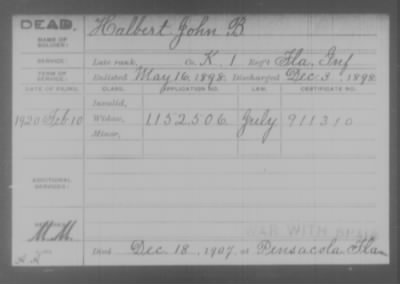 DEAD.
NAME OF SOLDIER: Halbert John B
SERVICE: Late rank, Co. K. 1 Reg't Fla. Inf
TERM OF SERVICE: Enlisted May 16, 1898. Discharged Dec. 3, 1898
DATE OF FILING. CLASS. APPLICATION NO. LAW. CERTIFICATE NO.
Invalid,
1920 Feb 10 Widow, 1152506 July 911310
Minor,
ADDITIONAL SERVICES:
WAR WITH SPAIN
M.M.
Died Dec. 18, 1907, at Pensacola Fla